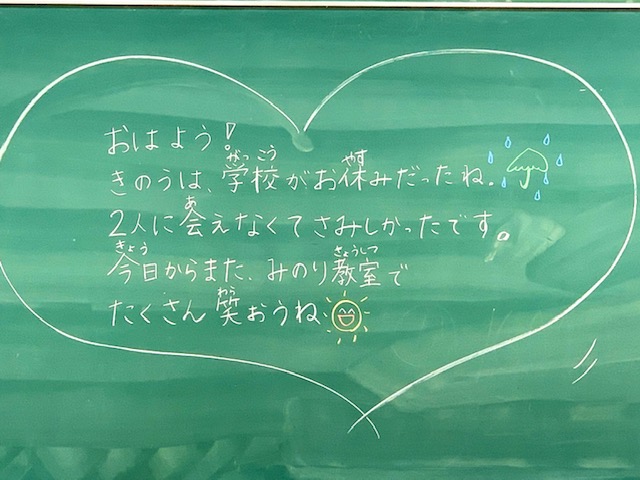 おはよう!
きのうは、学校がお休みだったね。
2人に会えなくてさみしかったです。
今日からまた、みのり教室で
たくさん笑おうね。
がっこう
やす
あ
きょう
きょうしつ
わら